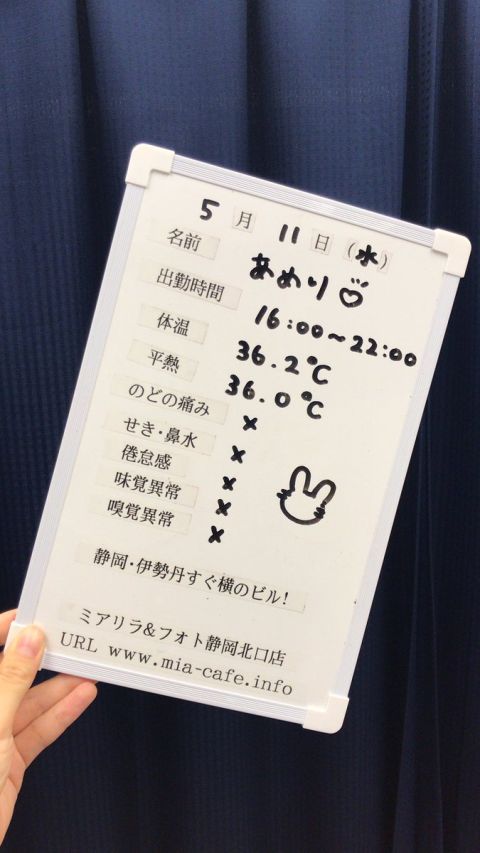 5月11日(水)
名前 あめり
出勤時間 16:00~22:00
体温 36.2℃
平熱 36.0℃
のどの痛み ×
せき・鼻水 ×
倦怠感 ×
味覚異常 ×
嗅覚異常 ×
静岡・伊勢丹すぐ横のビル!
ミアリラ&フォト静岡北口店
URL www.mia-cafe.info